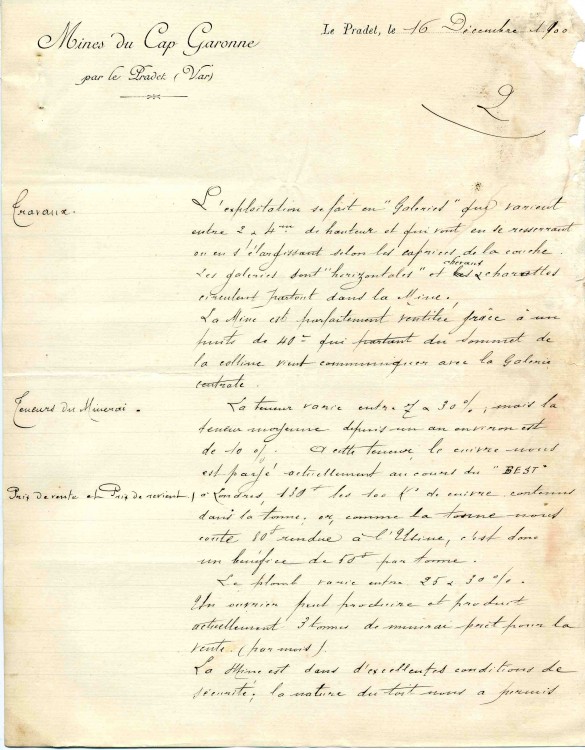 Mines du Cap Garonne
par le Pradet (Var)
Le Pradet, le 16 Décembre 1900
2
Travaux.
L'exploitation se fait en "Galeries" qui varient
entre 2 à 4 m de hauteur et qui vont en se resserrant
ou en s'élargissant selon les caprices de la couche.
Les galeries sont "horizontales" et chevaux & charettes
circulent partout dans la Mine.
La Mine est parfaitement ventilée grâce à un
puits de 40 m qui partant du sommet de
la colline vient communiquer avec la Galerie
centrale.
Teneurs du Minerai.
La teneur varie entre 7 à 30 %, mais la
teneur moyenne depuis un an environ est
de 10 %. A cette teneur, le cuivre nous
est payé actuellement au cours du "BEST"
Prix de vente et Prix de revient,
à Londres, 130 f les 100 K° de cuivre contenus
dans la tonne. or, comme la tonne nous
coute 80 f rendue à l'Usine, c'est donc
un bénéfice de 50 f par tonne.
Le plomb varie entre 25 à 30 %.
Un ouvrier peut produire et produit
actuellement 3 tonnes de minerai prêt pour la
vente. (par mois).
La Mine est dans d'excellentes conditions de
sécurité; la nature du toit nous a permis